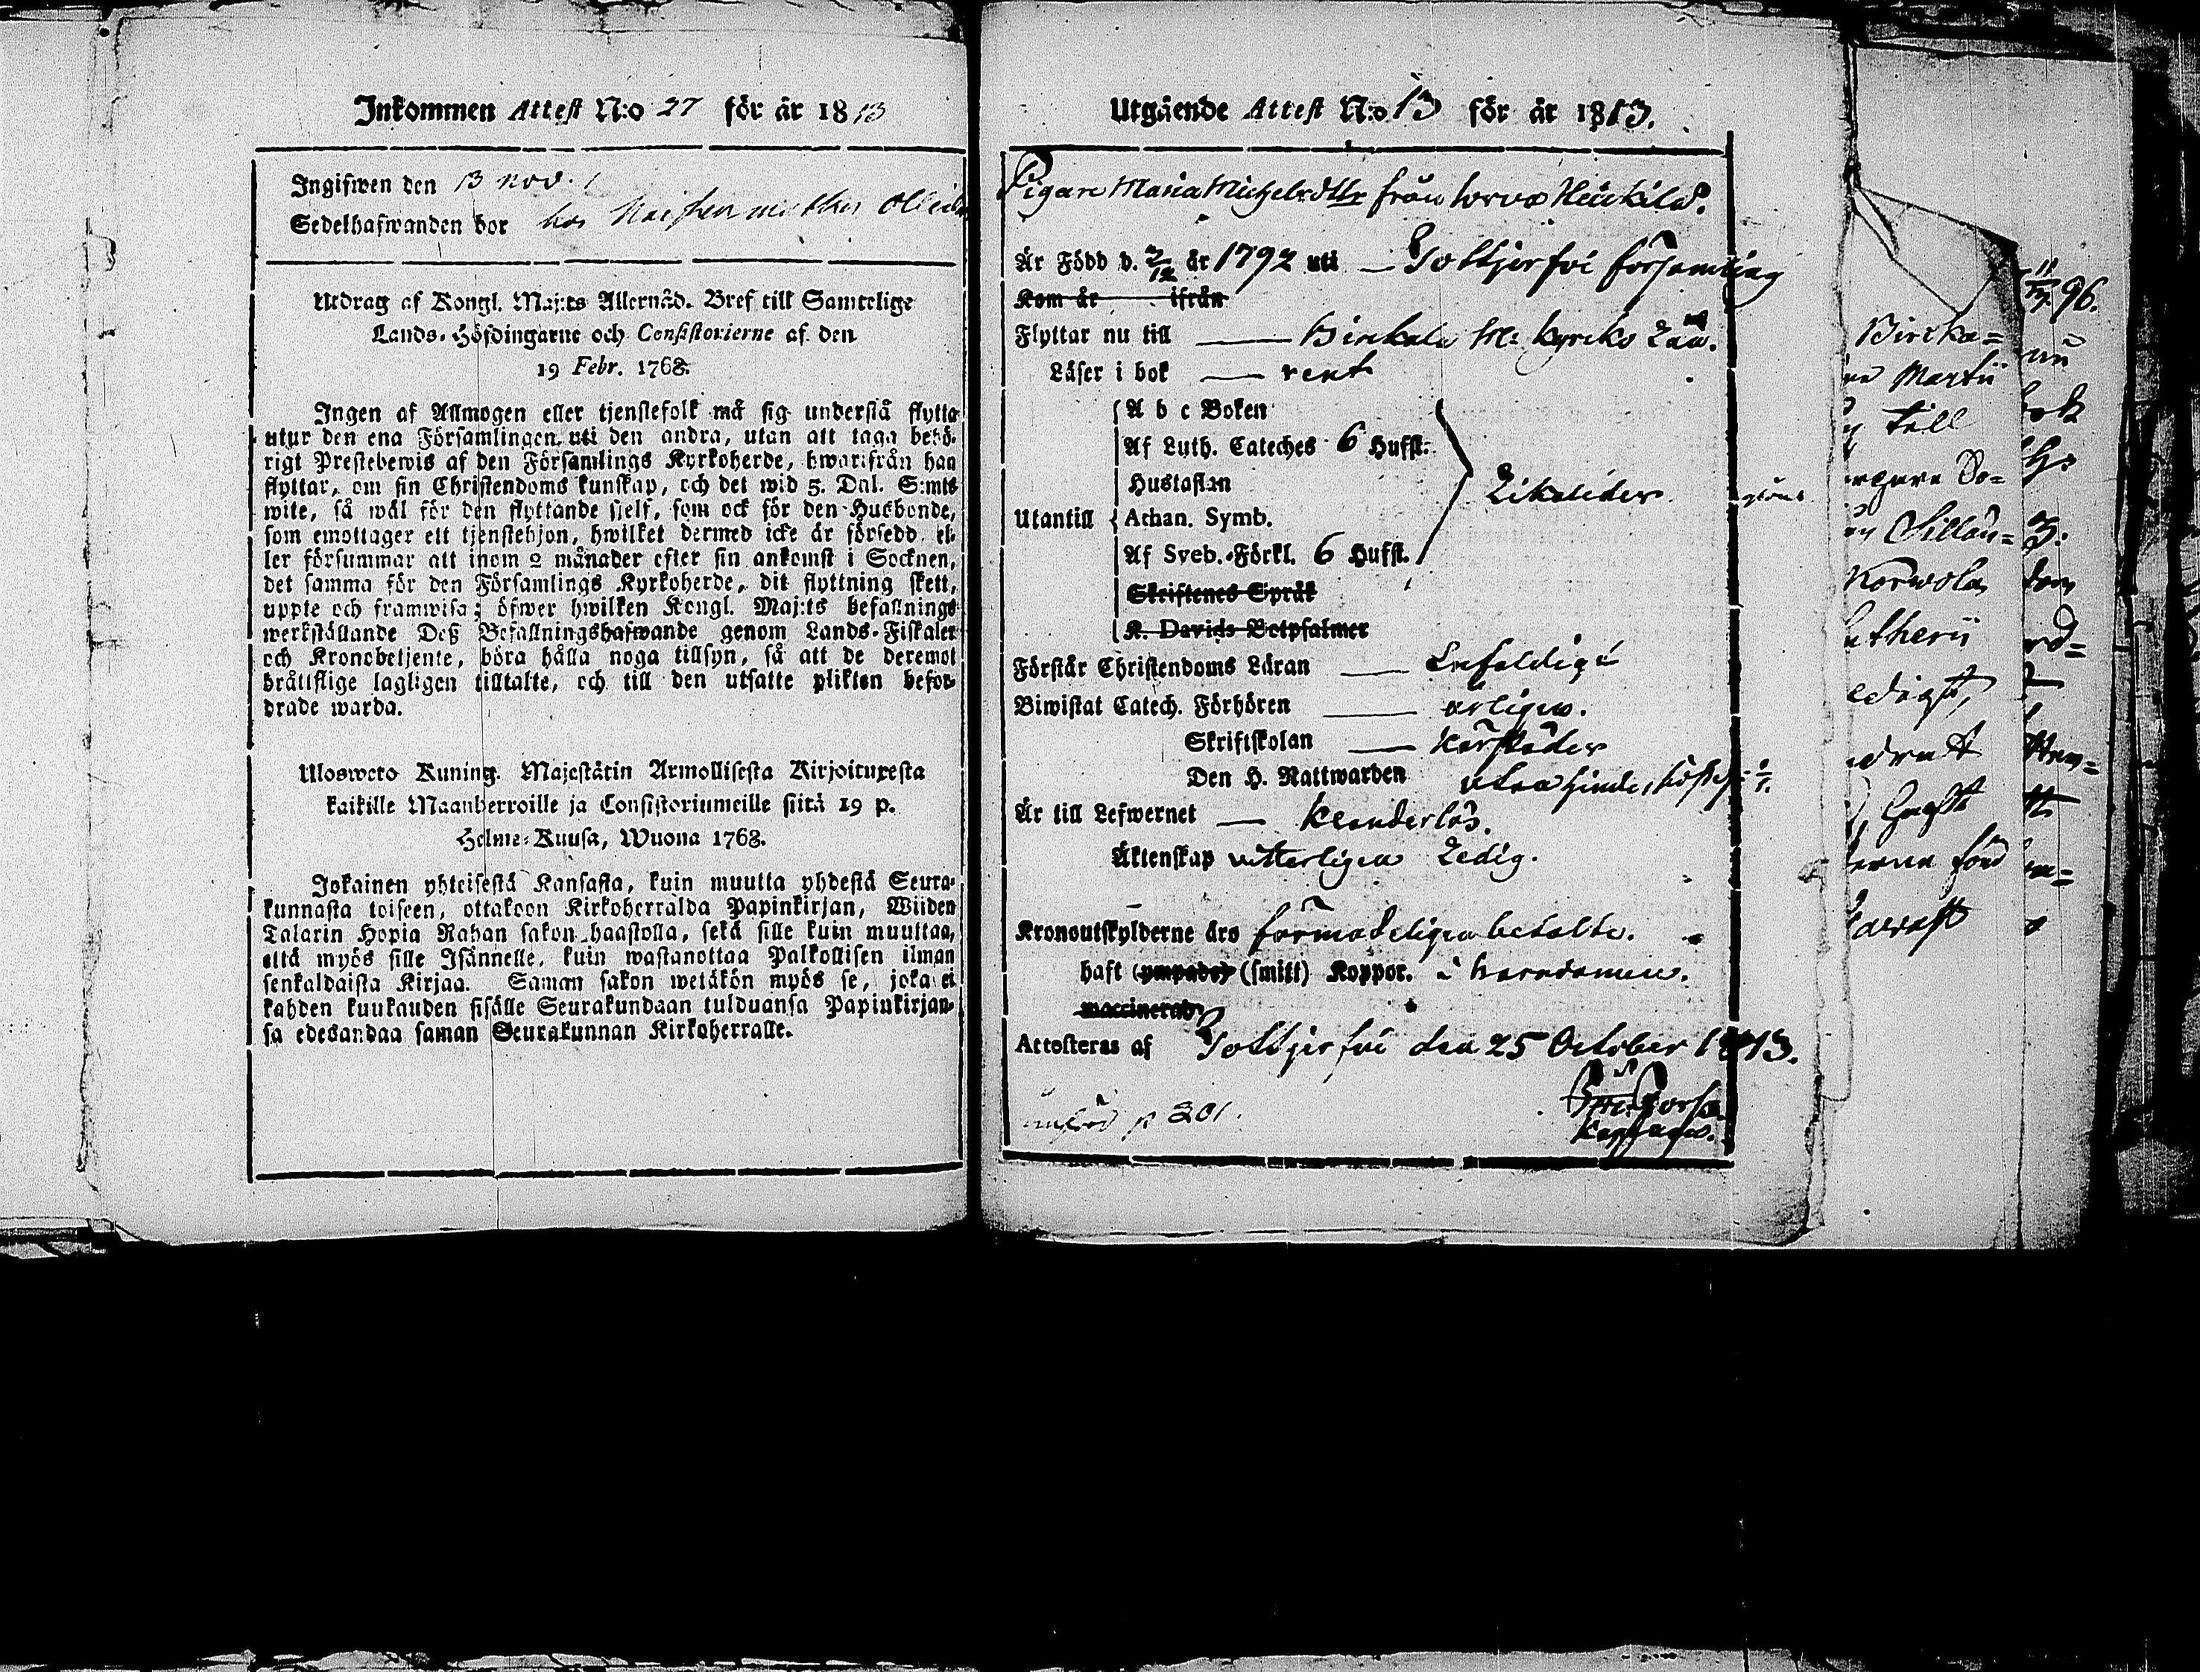 Inkommen Attest N:o 27 för år 1813
Ingifwen den 13 nov.
Sedelhafwanden bor hos
Utdrag af Kongl. Maj:ts Allernåd. Bref till Samtelige
Lands-Höfdingarne och Consistorierne af den
19 Febr. 1768.
Ingen af Allmogen eller tjenstefolk må sig understå flytta
utur den ena Församlingen uti den andra, utan att taga behö-
rigt Prestebewis af den Församlings Kyrkoherde, hwarifrån han
flyttar, om sin Christendoms kunskap, och det wid 5. Dal. S:mts
wite, så wäl för den flyttande sjelf, som ock för den Husbonde,
som emottager ett tjenstehjon, hwilket dermed icke är försedd el-
ler försummar att inom 2 månader efter sin ankomst i Socknen,
det samma för den Församlings Kyrkoherde, dit flyttning skett,
uppte och framwisa; öfwer hwilken Kongl. Maj:ts befallnings
werkställande Deß Befallningshafwande genom Lands-Fiskaler
och Kronobetjente, böra hålla noga tillsyn, så att de deremot
bråttslige lagligen tilltalte, och till den utsatte plikten befor-
drade warda.
Ulosweto Kuning. Majestätin Armollisesta Kirjoituxesta
kaikille Maanherroille ja Consistoriumeille siitä 19 p.
Helme-Kuusa, Wuona 1768.
Jokainen yhteisestä Kansasta, kuin muutta yhdestä Seura-
kunnasta toiseen, ottakoon Kirkoherralda Papinkirjan, Wiiden
Talarin Hopia Rahan sakon haastolla, sekä sille kuin muuttaa,
että myös sille Isännelle, kuin wastanottaa Palkollisen ilman
senkaldaista Kirjaa. Saman sakon wetäkön myös se, joka ei
kahden kuukauden sisälle Seurakundaan tulduansa Papinkirjan-
sa edesandaa saman Seurakunnan Kirkoherralle.
Utgående Attest N:o 13 för år 1813.
Pigan Maria Michelsdttr från
Är Född d. 2/12 år 1792 uti församling
Kom år ifrån
Flyttar nu till Birkala M: kyrko
Läser i bok rent
A b c Boken
Af Luth. Cateches 6 Hufst:
Hustaflan
Utantill Athan. Symb. Likaledes
Af Sveb. Förkl. 6 Hufst.
Skriftenes Språk
K. Davids Botpsalmer
Förstår Christendoms Läran Enfaldigt
Biwistat Catech. Förhören årligen.
Skriftskolan
Den H. Nattwarden
Är till Lefwernet klanderlös.
Äktenskap vitterligen Ledig.
Kronoutskylderne äro förmodeligen betalte.
haft (ympade) (smitt) Koppor. i barndomen.
waccinerad
Attesteras af den 25 October 1813.
införd p 201.